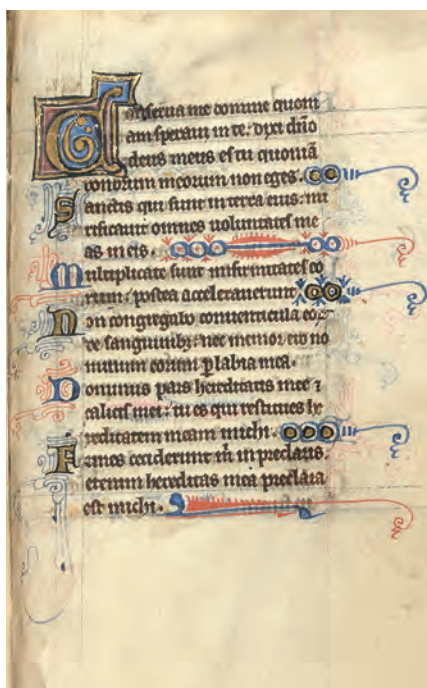 Conserua me domine quoni
am speraui in te: dixi dn̄o
deus meus es tu quoniā
bonorum meorum non eges.
Sanctis qui sunt in terra eius: mi
rificauit omnes uoluntates me
as in eis.
Multiplicate sunt infirmitates eo
rum: postea accelerauerunt.
Non congregabo conuenticula eoꝝ
de sanguinibꝫ: nec memor ero no
minum eorum ꝑ labia mea.
Dominus pars hereditatis mee ⁊
calicis mei: tu es qui restitues he
reditatem meam michi.
Funes ceciderunt m̄ in preclaris:
etenim hereditas mea preclara
est michi.